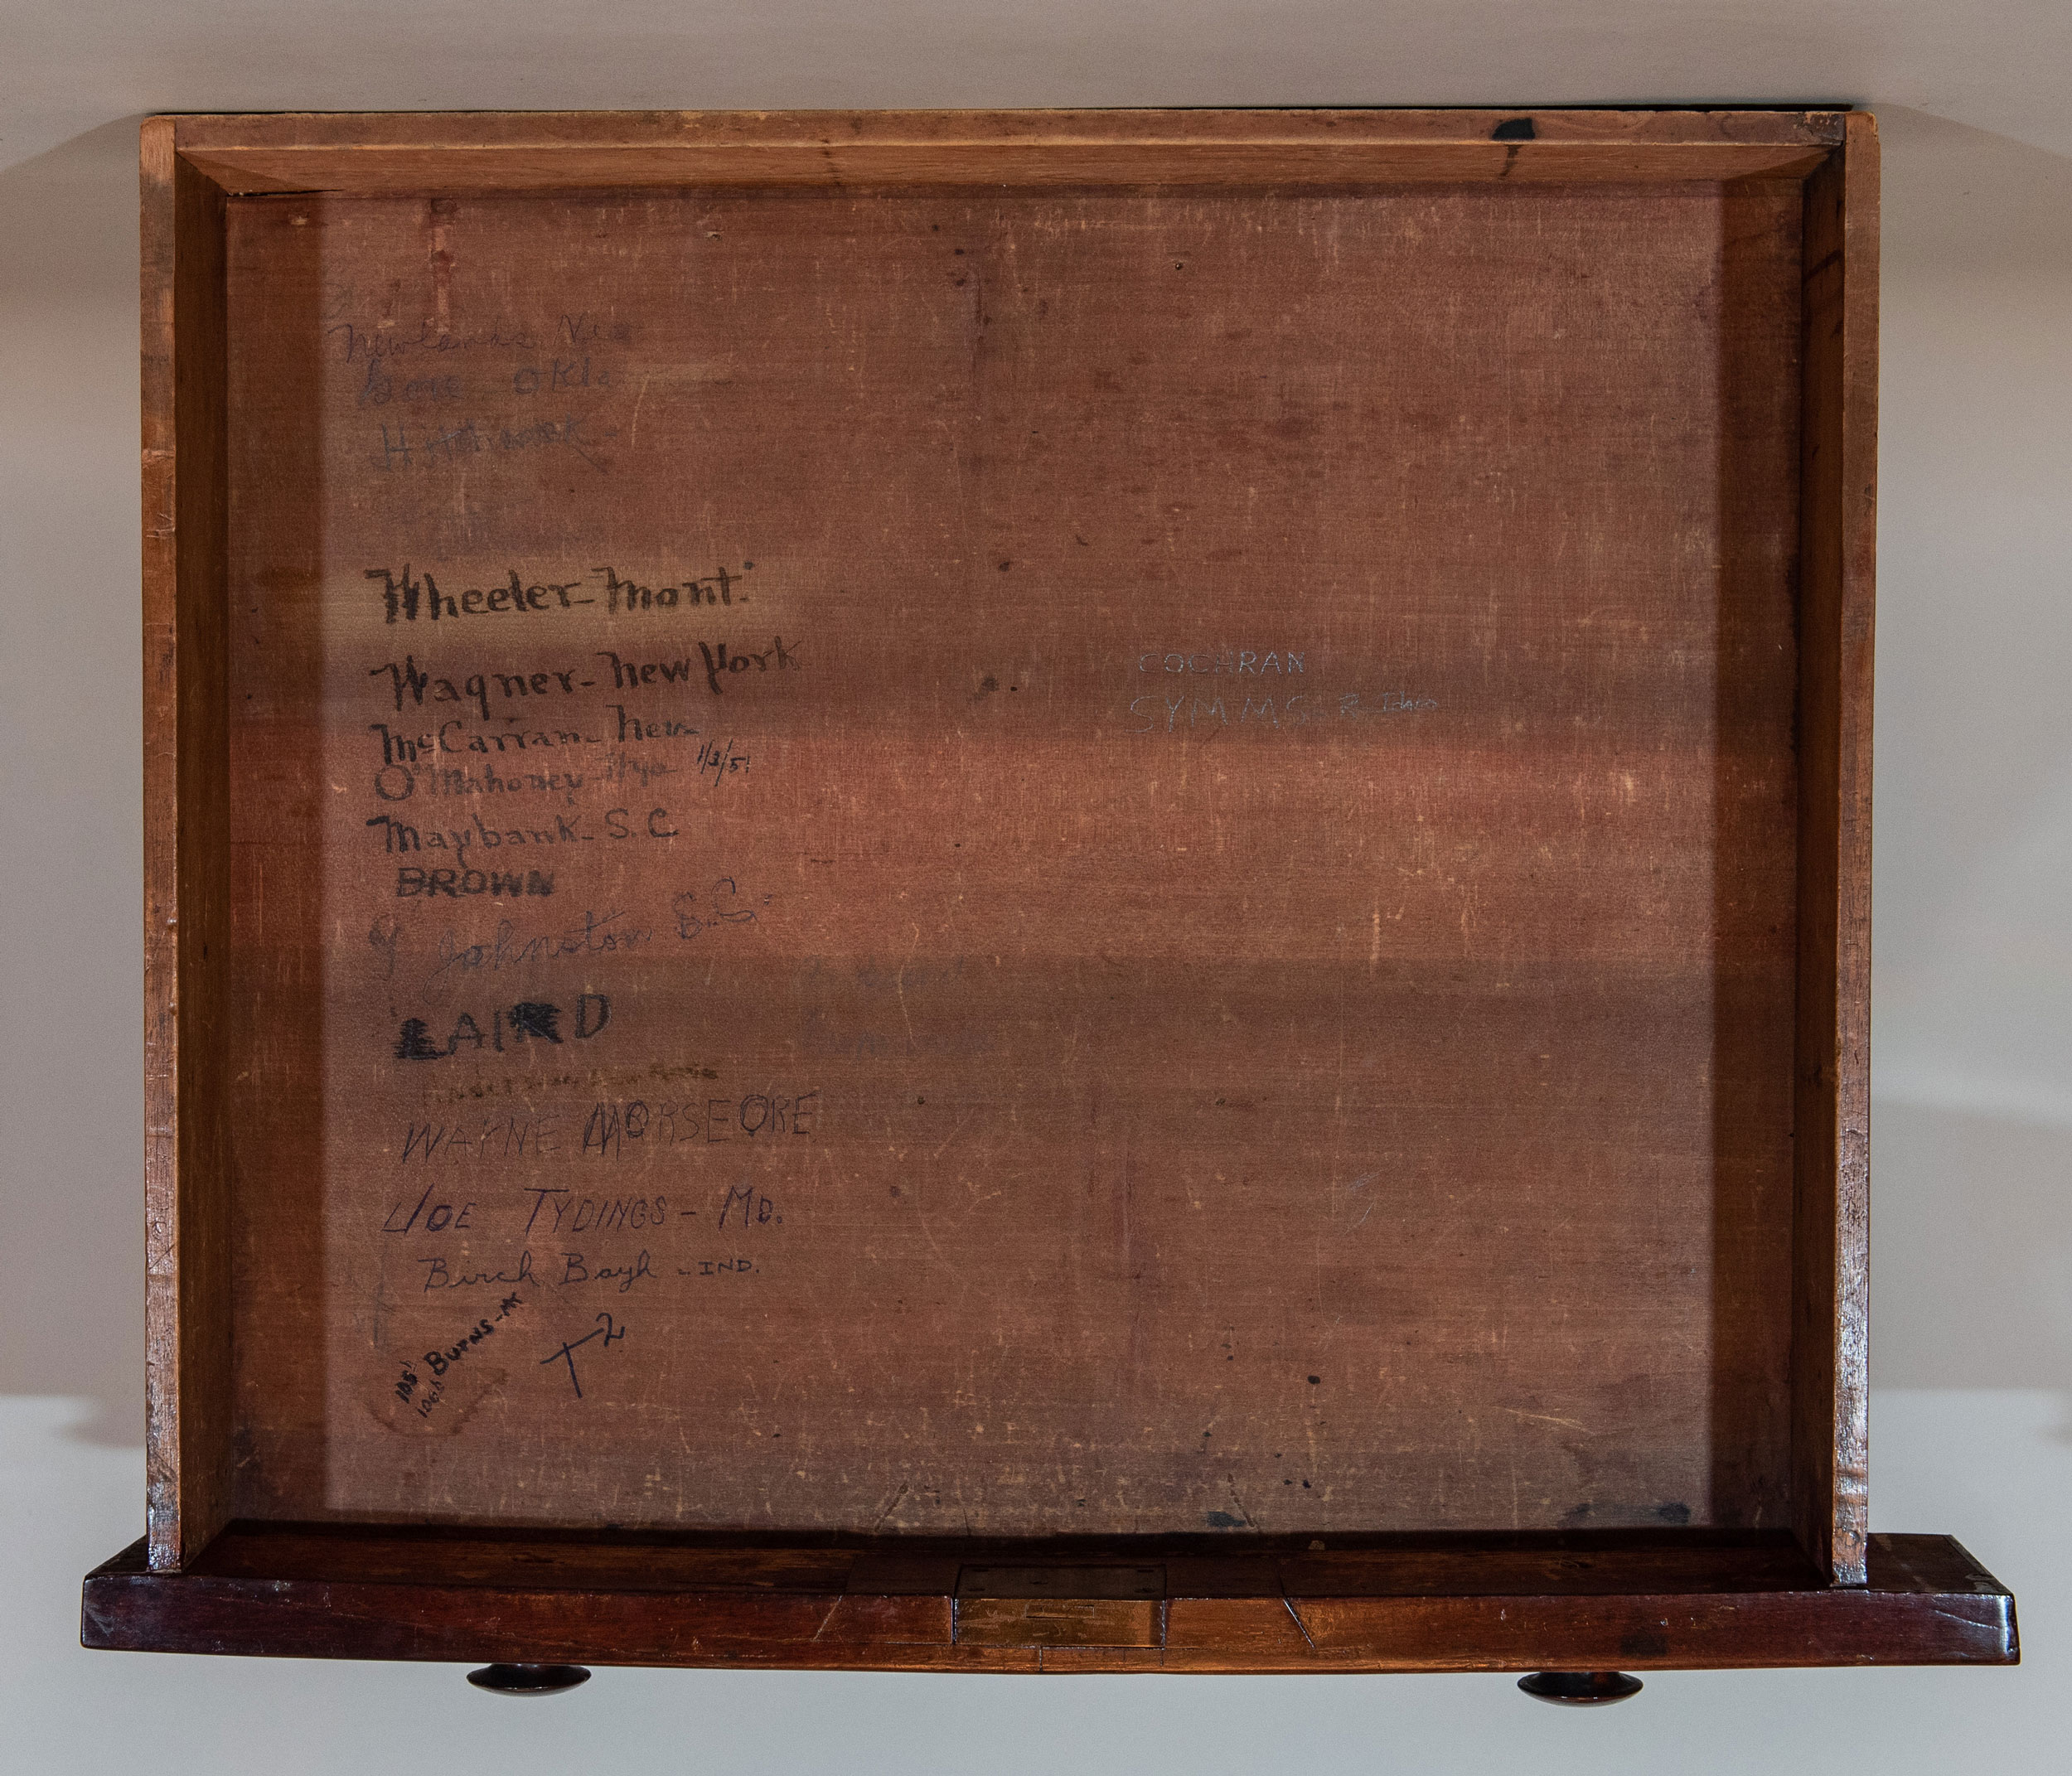 Newlands Nev
Gore Okla
Hitchcock -
Wheeler - Mont.
Wagner - New York
McCarran - Nev
O'Mahoney - Wyo 1/3/51
Maybank - S.C
BROWN
Johnston S.C.
LAIRD
WAYNE MORSE ORE
JOE TYDINGS - MD.
Birch Bayh - IND.
BURNS - MT
105th
106th
COCHRAN
SYMMS R-Idaho